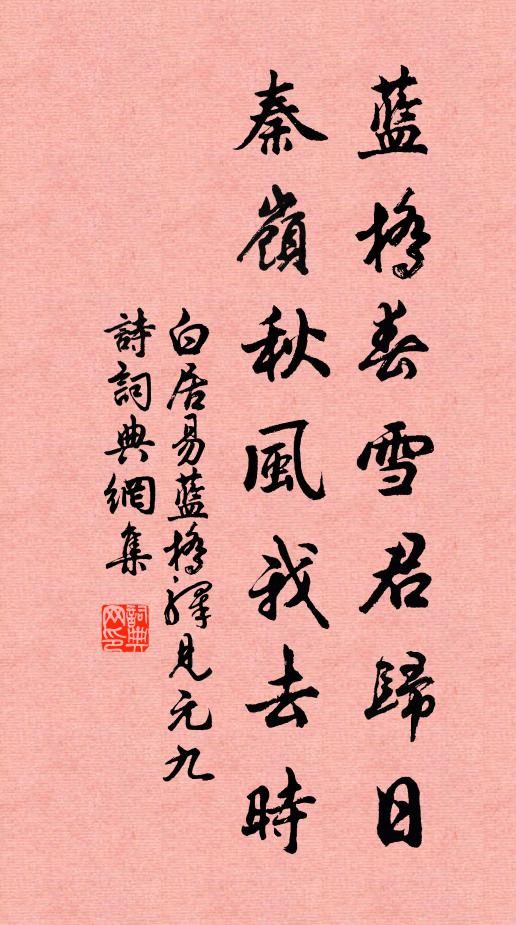 藍橋春雪君歸日
秦嶺秋風我去時
白居易藍橋驛見元九
詩詞典網集
詞典网印